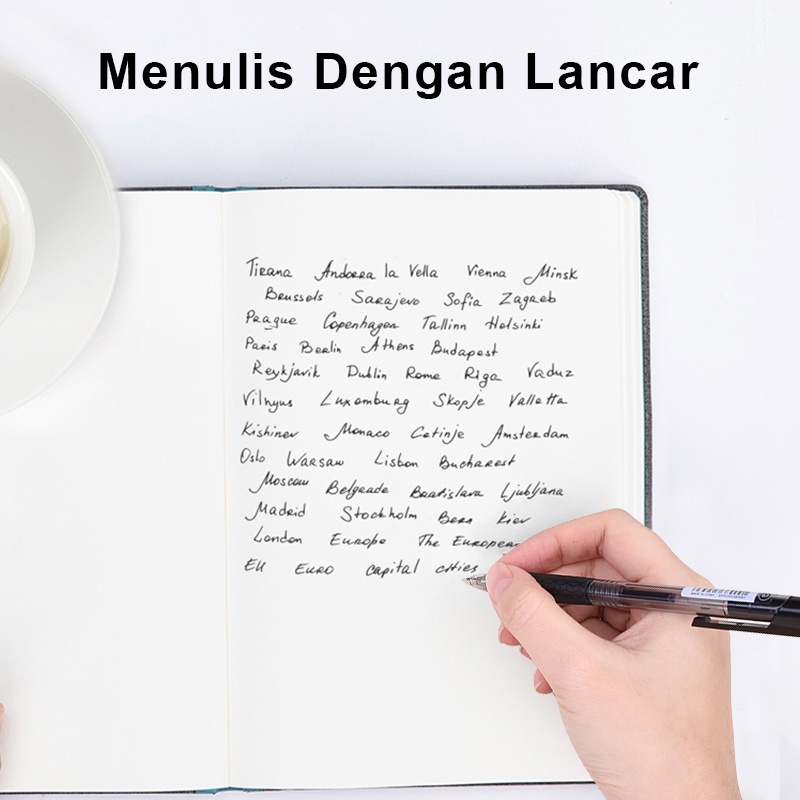 Menulis Dengan Lancar
Tirana Andorra la Vella Vienna Minsk
Brussels Sarajevo Sofia Zagreb
Prague Copenhagen Tallinn Helsinki
Paris Berlin Athens Budapest
Reykjavik Dublin Rome Riga Vaduz
Vilnyus Luxemburg Skopje Valletta
Kishinev Monaco Cetinje Amsterdam
Oslo Warsaw Lisbon Bucharest
Moscow Belgrade Bratislava Ljubljana
Madrid Stockholm Bern Kiev
London Europe The European
EU Euro capital cities